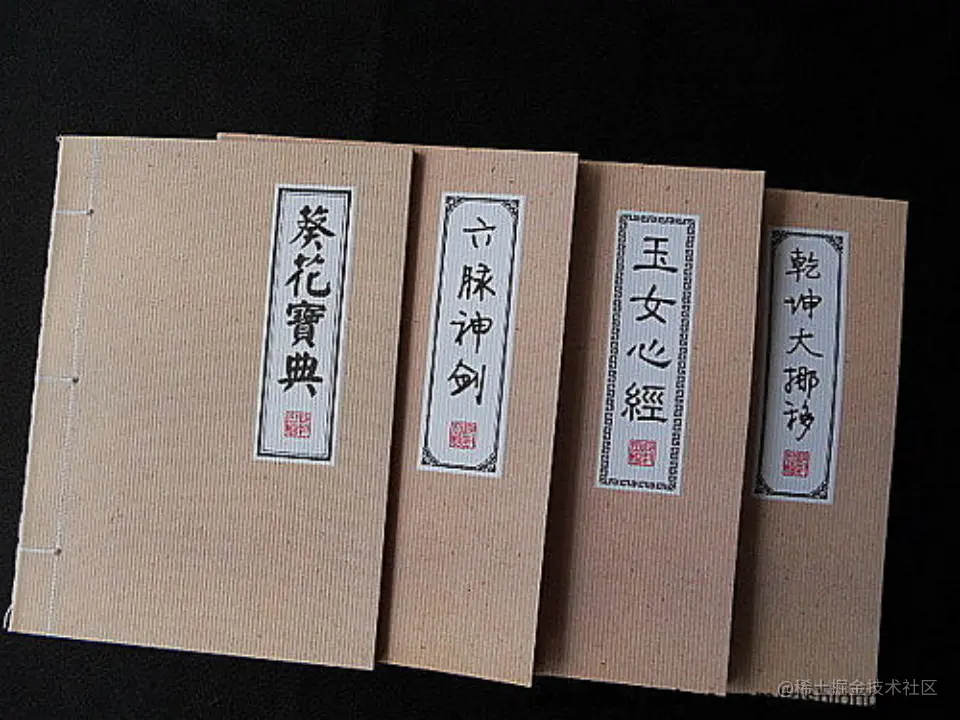 葵花寶典
六脉神剑
玉女心經
乾坤大挪移
@稀土掘金技术社区